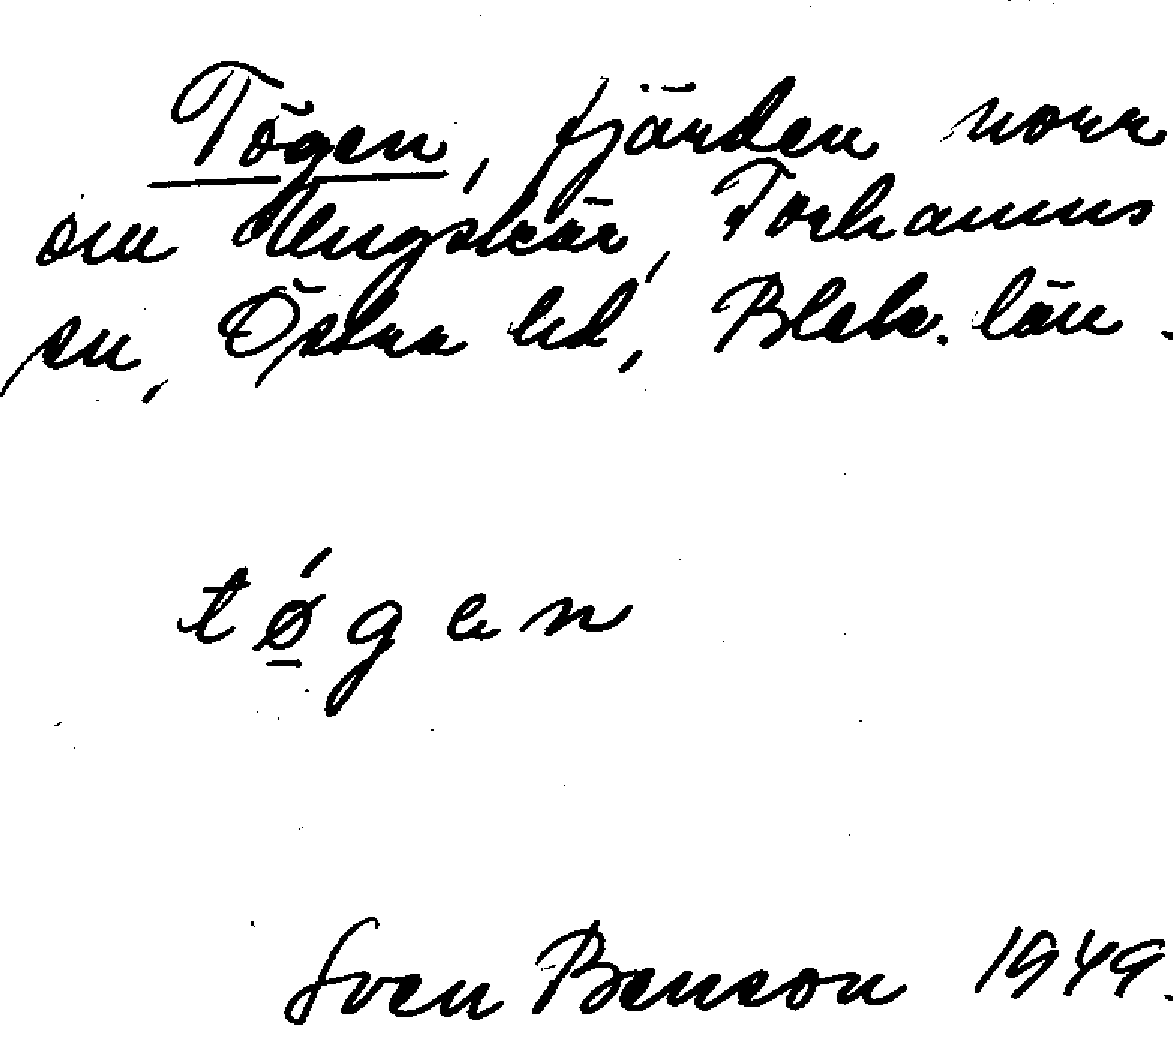 Tögen, fjärden norr
om Ungskär, Torhamns
sn, Östra hd, Blek. län.
t ǿ g e n
Sven Benson 1949.